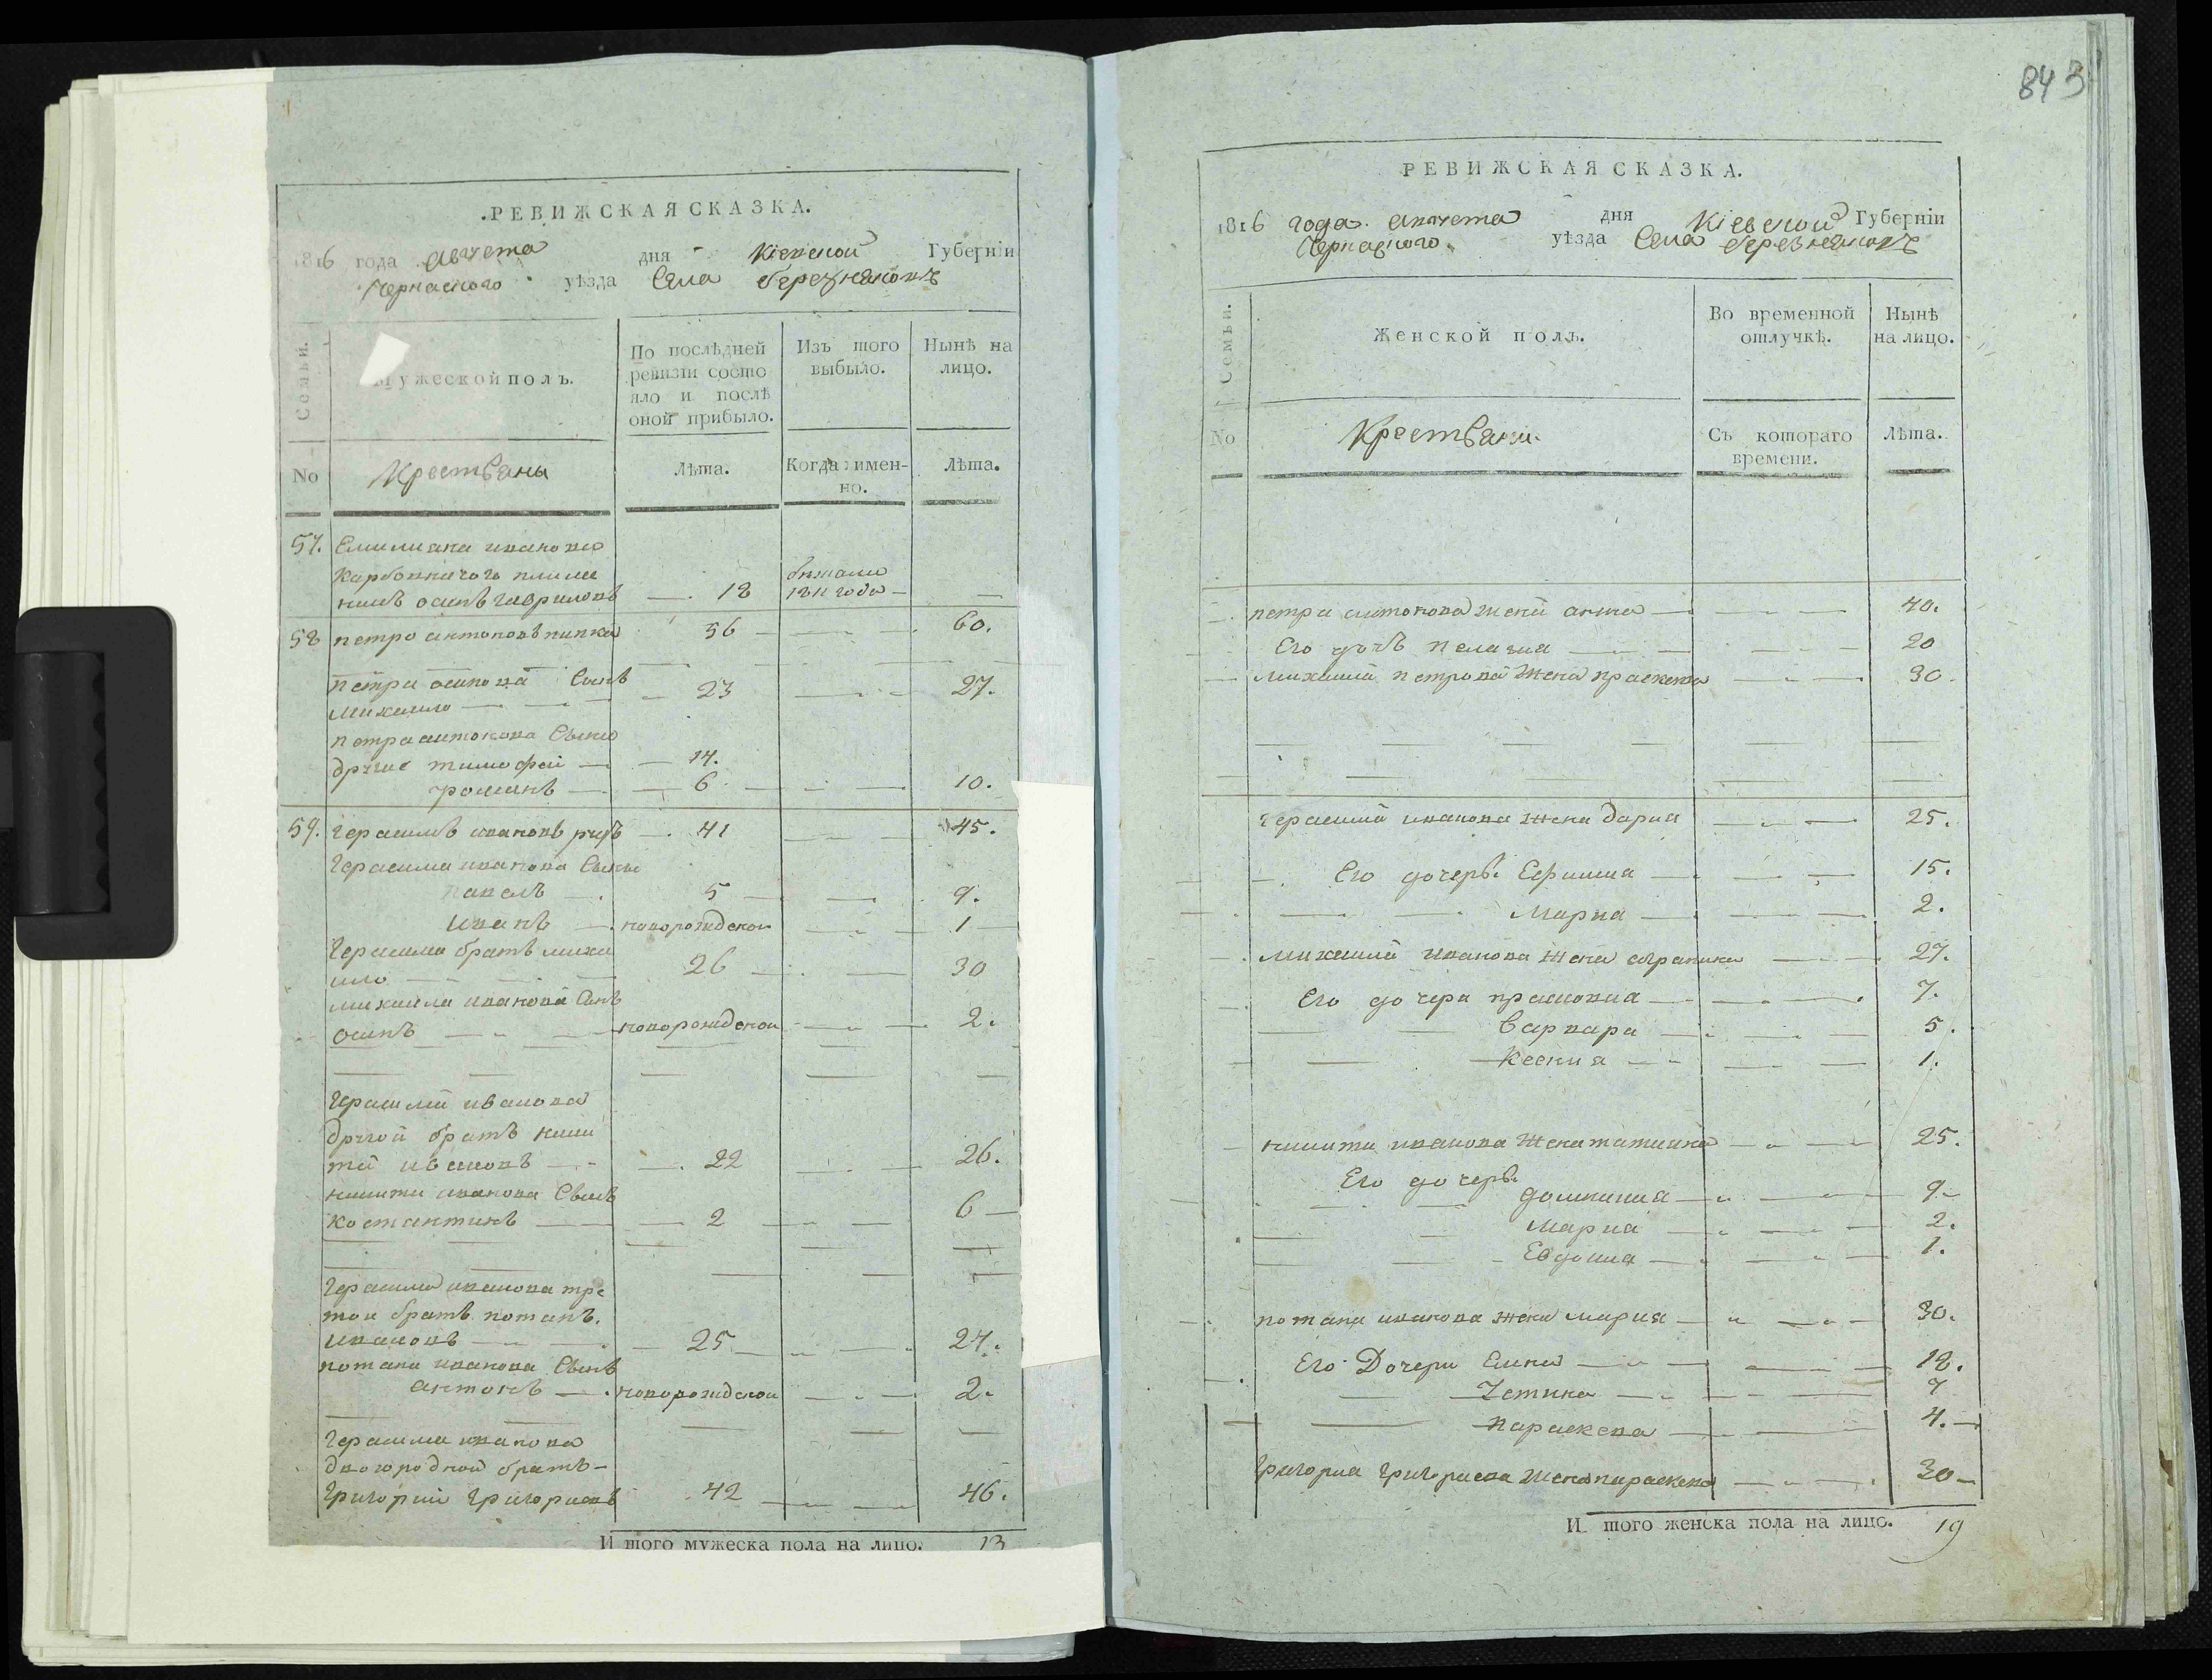 843
.РЕВИЖСКАЯ СКАЗКА.
1816 года августа дня Кіевской Губерніи
Черкаского уѣзда Села березняковъ
Семьи.
Мужеской полъ.
По послѣдней ревизіи состо яло и послѣ оной прибыло.
Изъ того выбыло.
Нынѣ на лицо.
No
Крестьяны
Лѣта.
Когда имен- но.
Лѣта.
57. Емилиана иванова
Карбовничого плимен
никъ осипъ гаврыловъ — 18 бежали 1811 года — —
58 петро антоновъ пипка 56 — — 60.
петра осипова Сынъ
михаило — 23 — 27.
петра антонова Сыны
другие тимофей — 14.
романъ — 6 — 10.
59. герасимъ ивановъ — 41 — 45.
герасима иванова Сыны
павелъ — 5 — 9.
иванъ — новорожденои — 1
герасима братъ миха
ило — 26 — 30
михаила иванова Синъ
осипъ — новорожденои — 2.
герасима иванова
другой братъ ники
та ивановъ — 22 — 26.
никити иванова Сынъ
костантинъ — 2 — 6 —
герасима иванова тре
тои братъ потапъ
ивановъ — 25 — 27.
потапа иванова Сынъ
антонъ — новорожденои — 2.
герасима иванова
двоюродной братъ —
григорий григориевъ 42 — 46.
И того мужеска пола на лицо. 13
РЕВИЖСКАЯ СКАЗКА.
1816 года августа дня Кіевской Губерніи
Черкаского уѣзда Села березняковъ
Семьи.
Женской полъ.
Во временной отлучкѣ.
Нынѣ на лицо.
No
Крестьяни.
Съ котораго времени.
Лѣта.
петра антонова жена анна — 40.
Его дочъ пелагия — 20
михаила петрова жена праскева — 30.
герасима иванова жена дария — 25.
Его дочеры Ефимия — 15.
Мария — 2.
михаила иванова жена — 27.
Его дочери прасковия — 7.
варвара — 5.
Ксения — 1.
никити иванова жена татияна — 25.
Его дочеры
домникия — 9 —
Мария — 2.
Евдокия — 1.
потапа иванова жена мария — 30.
Его Дочери Елена — 18.
7
параскева — 4. —
григория григориева жена параскева — 30 —
И того женска пола на лицо. 19